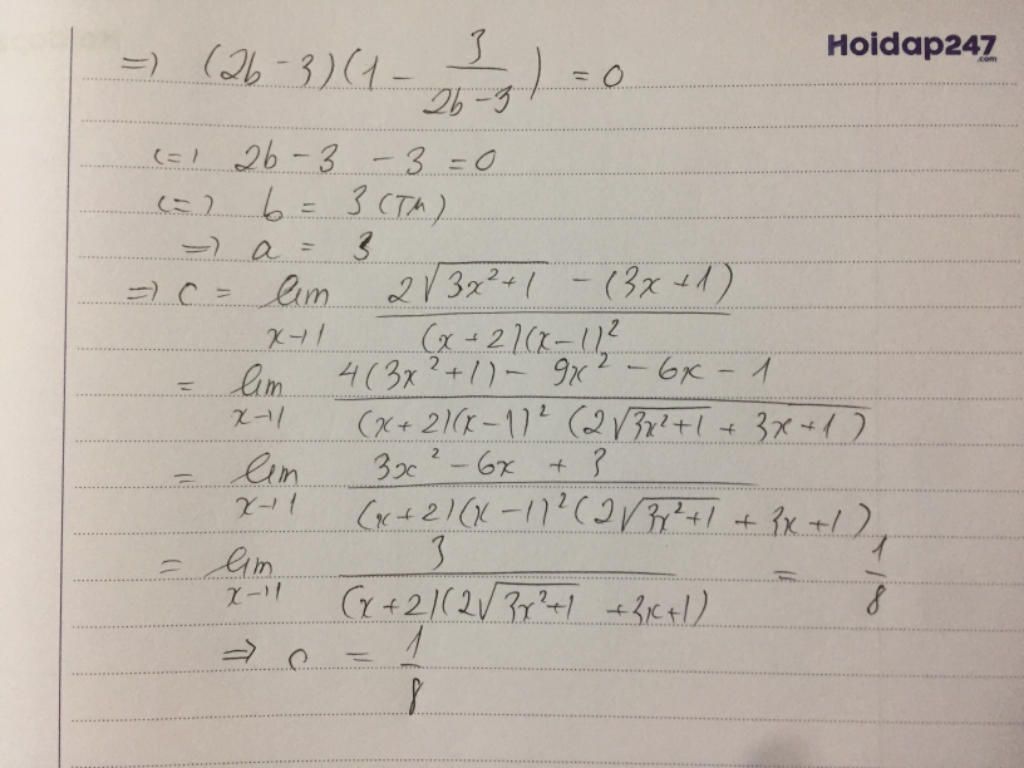 Hoidap247
.com
=> (2b - 3)(1 - 3/(2b-3)) = 0
<=> 2b - 3 - 3 = 0
<=> b = 3 (TM)
=> a = 3
=> c = lim x→1 (2√(3x²+1) - (3x+1))/((x+2)(x-1)²)
= lim x→1 (4(3x²+1) - 9x² - 6x - 1)/((x+2)(x-1)² (2√(3x²+1) + 3x+1))
= lim x→1 (3x² - 6x + 3)/((x+2)(x-1)² (2√(3x²+1) + 3x+1))
= lim x→1 3/((x+2)(2√(3x²+1) + 3x+1)) = 1/8
=> c = 1/8